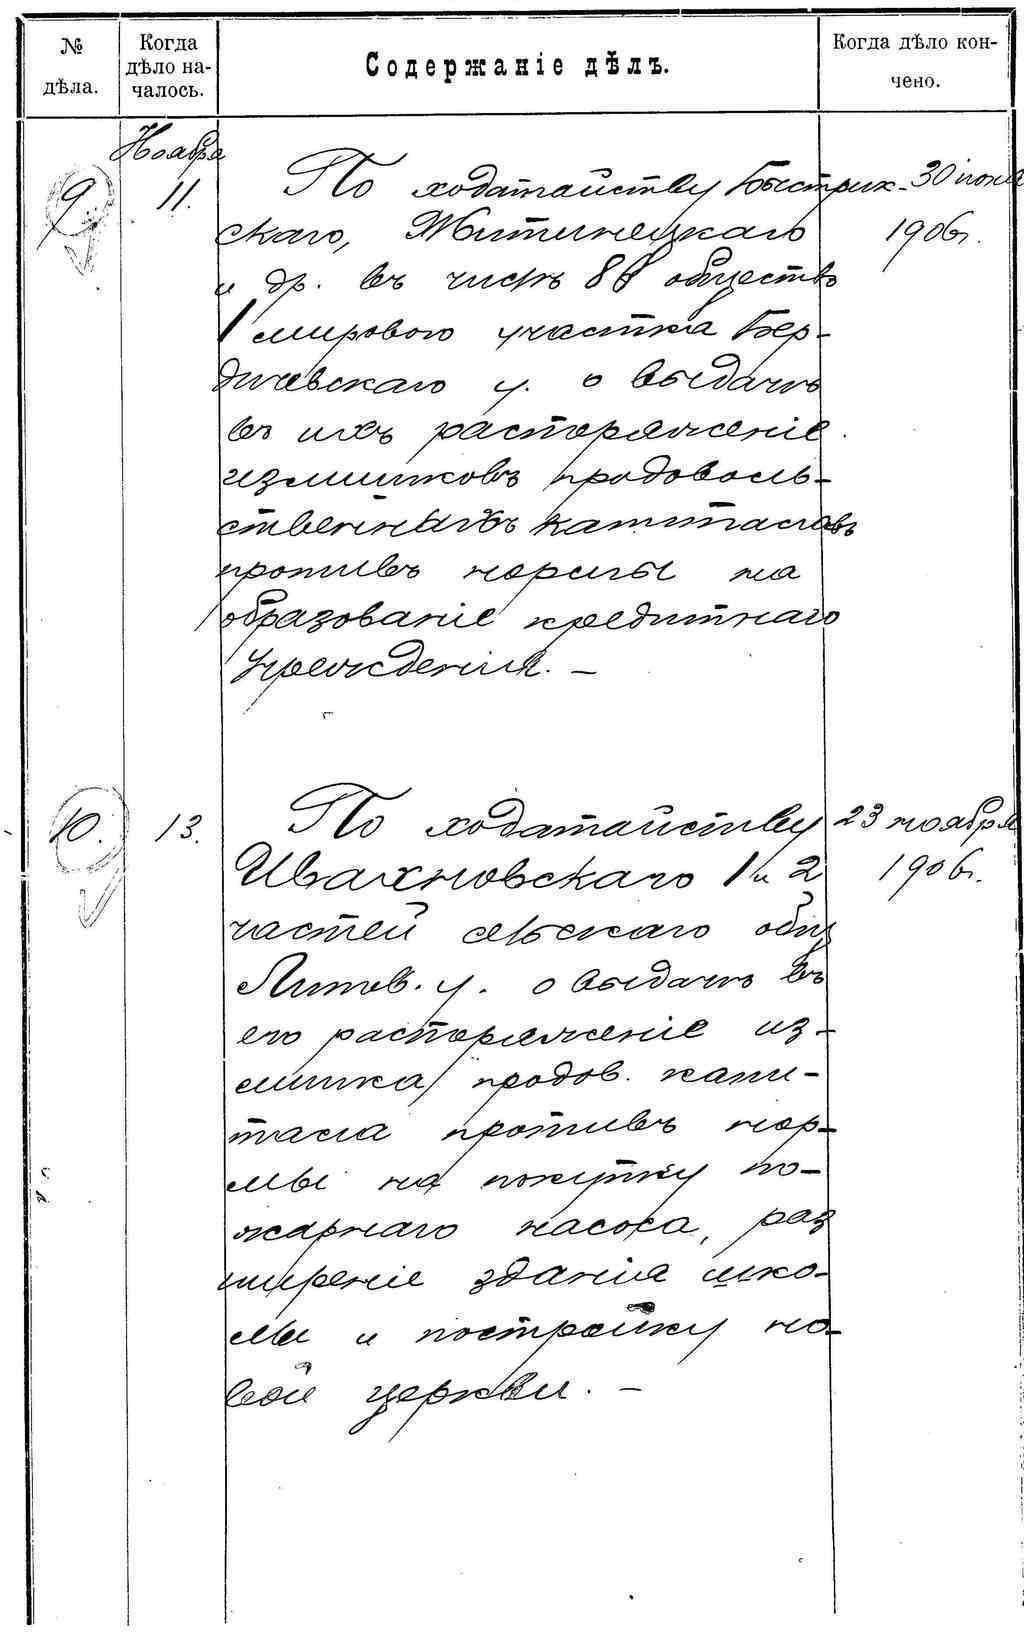 № дѣла.
Когда дѣло на-чалось.
Содержаніе дѣлъ.
Когда дѣло кон-чено.
Ноября
9. 11. По ходатайству Быстрик- 30 іюня
скаго, Житинецкаго 1906 г.
и др. въ числѣ 88 обществъ
1 мирового участка Бер-
дичевскаго у. о выдачѣ
въ ихъ распоряженіе
излишковъ продоволь-
ственныхъ капиталовъ
противъ нормы на
образованіе кредитнаго
учрежденія. —
10. 13. По ходатайству 23 ноября
Ивахновскаго 1 и 2 1906 г.
частей сельскаго общ
Липов. у. о выдачѣ въ
его распоряженіе из-
лишка продов. капи-
тала противъ нор-
мы на покупку по-
жарнаго насоса, раз
ширеніе зданія шко-
лы и постройку но-
вой церкви. —